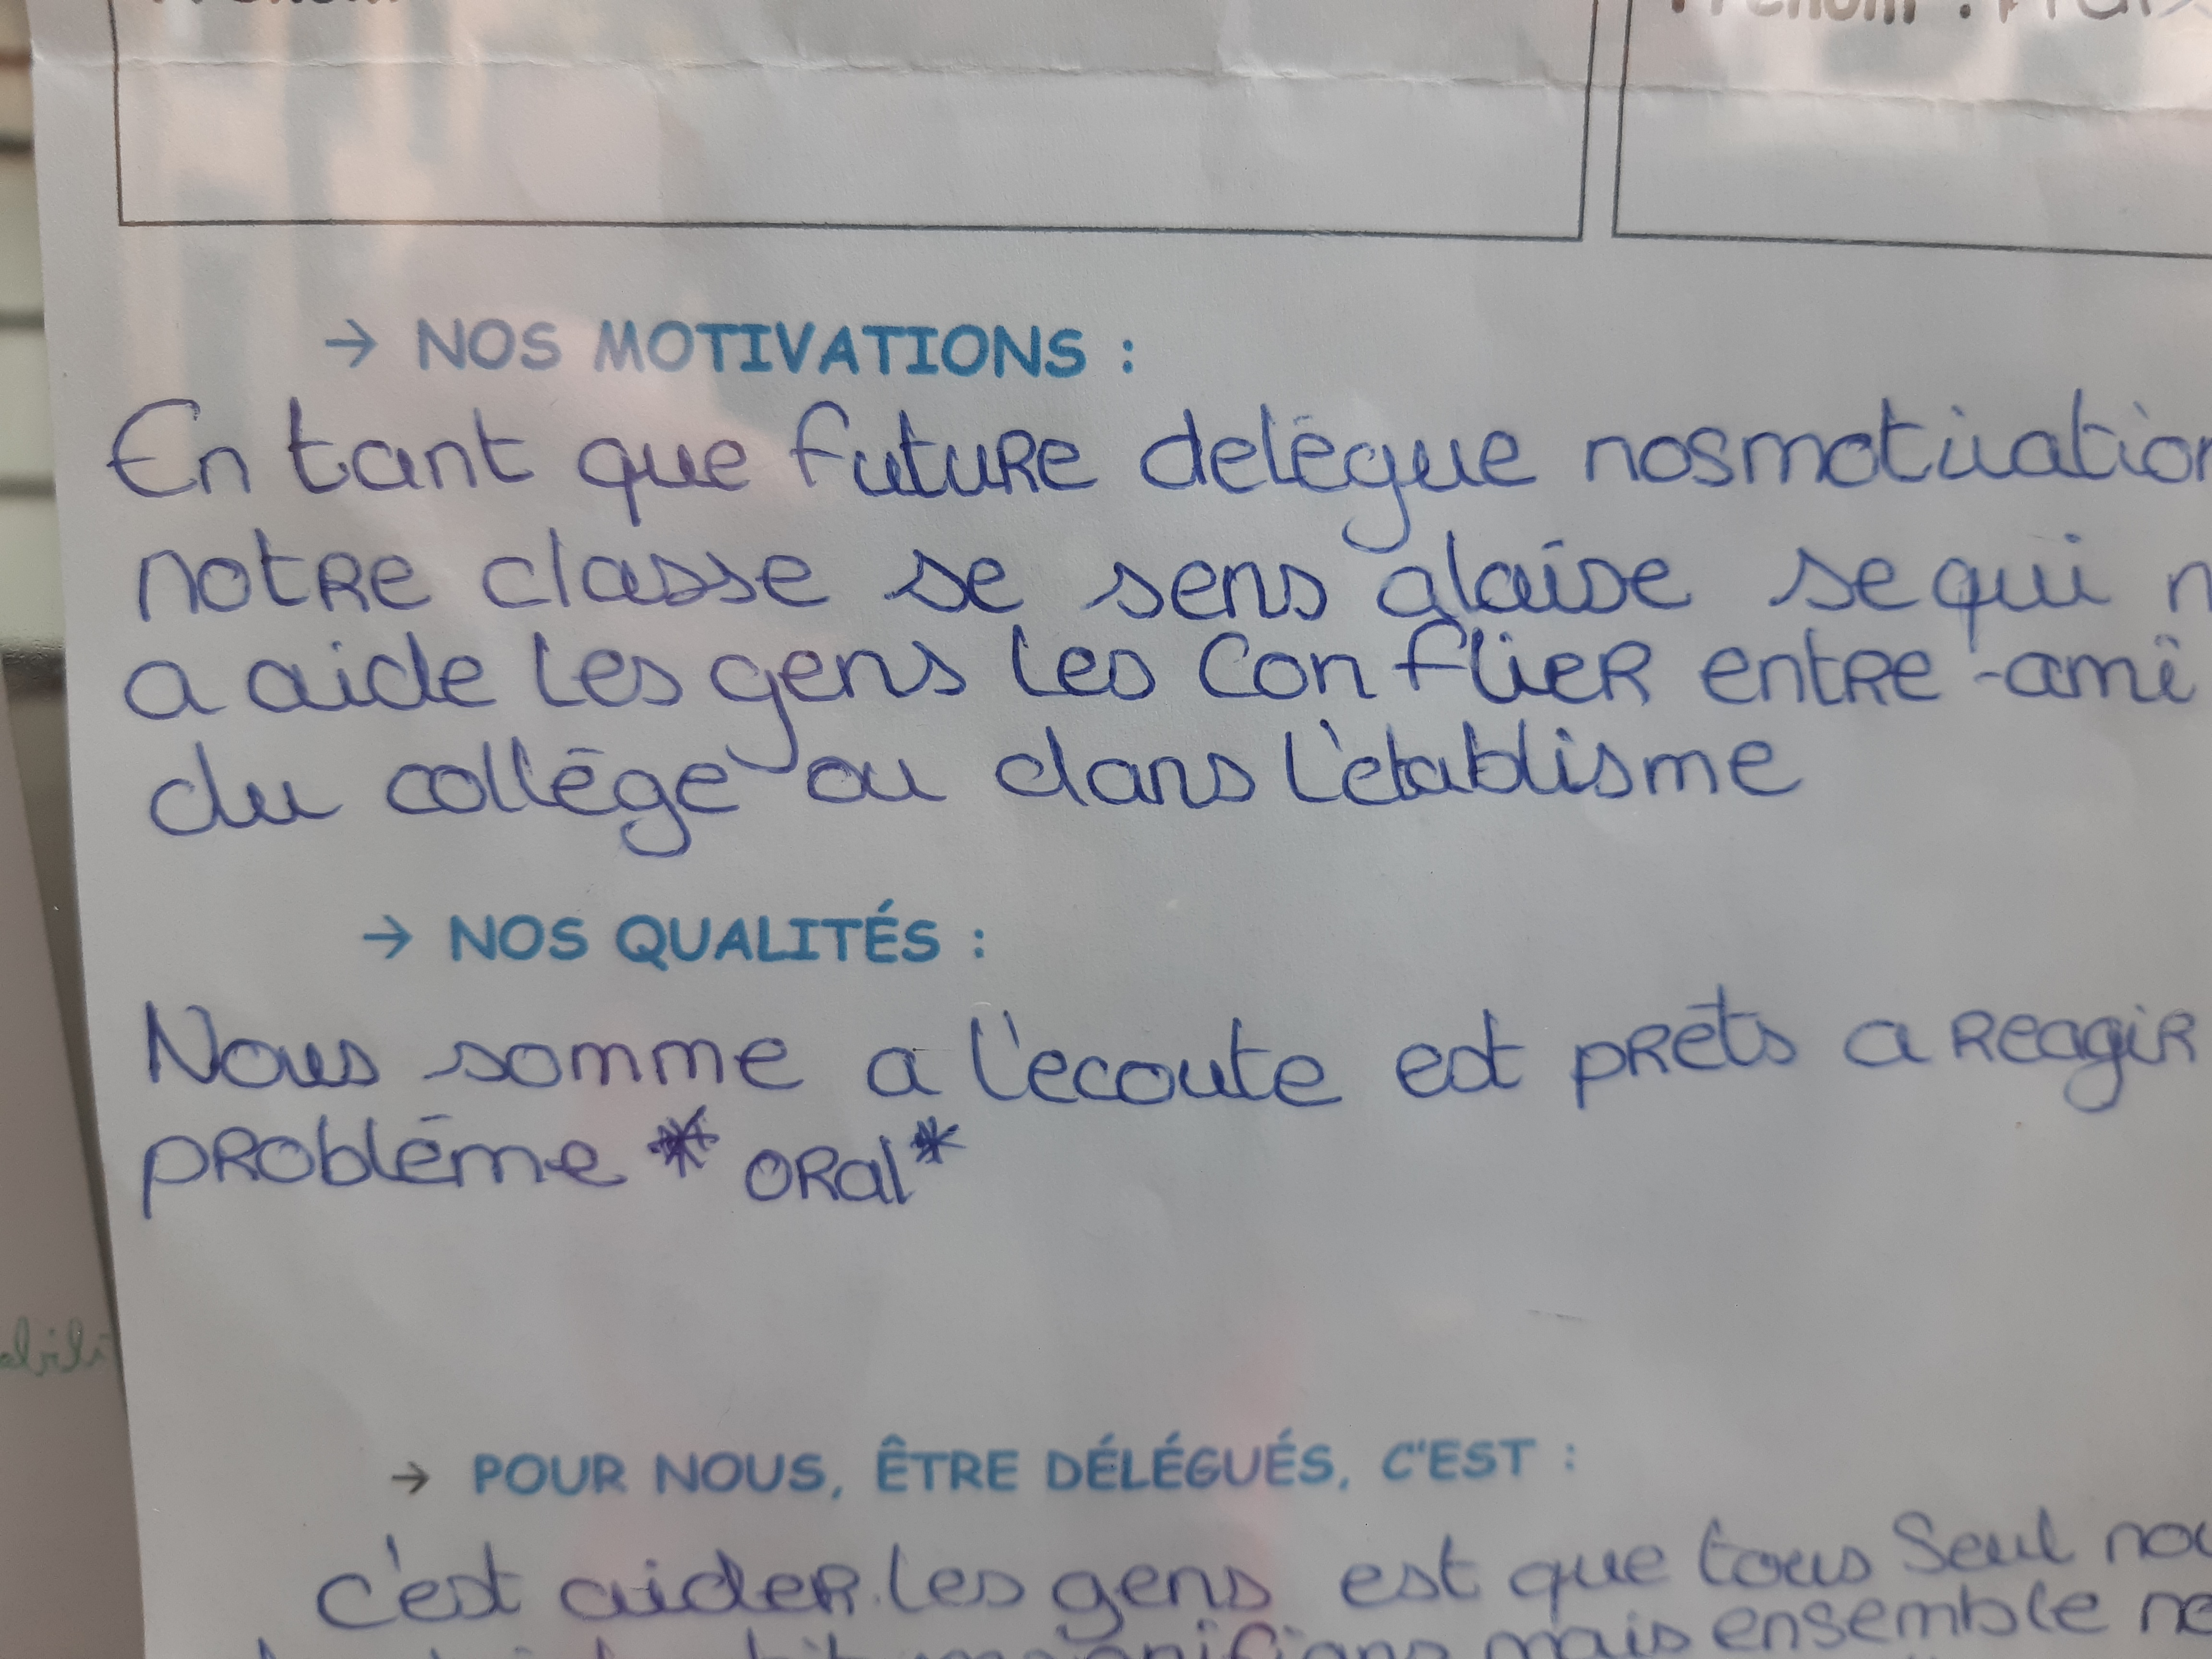 → NOS MOTIVATIONS :
En tant que future delégue nos motivation
notre classe se sens alaise se qui
a aide les gens les Conflier entre-ami
du collége ou dans l'etablisme
→ NOS QUALITÉS :
Nous somme a l'ecoute est prêts a reagir
probléme * oral *
→ POUR NOUS, ÊTRE DÉLÉGUÉS, C'EST :
c'est aider les gens est que tous Seul
mais ensemble